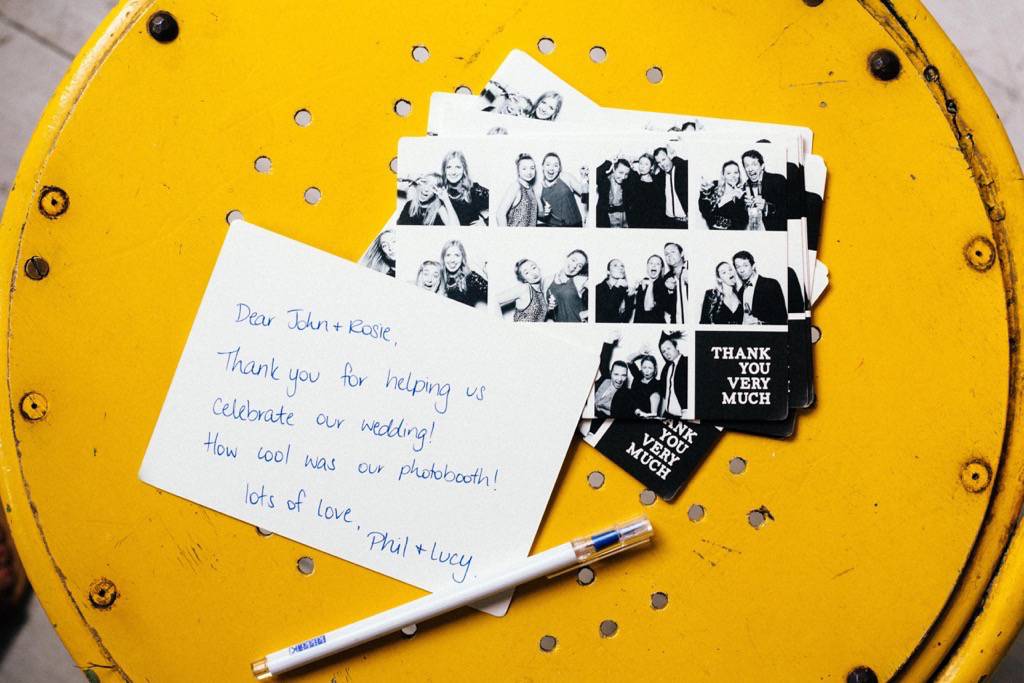 Dear John + Rosie,
Thank you for helping us
celebrate our wedding!
How cool was our photobooth!
lots of love,
Phil + Lucy.
THANK
YOU
VERY
MUCH
ANK
YOU
VERY
MUCH